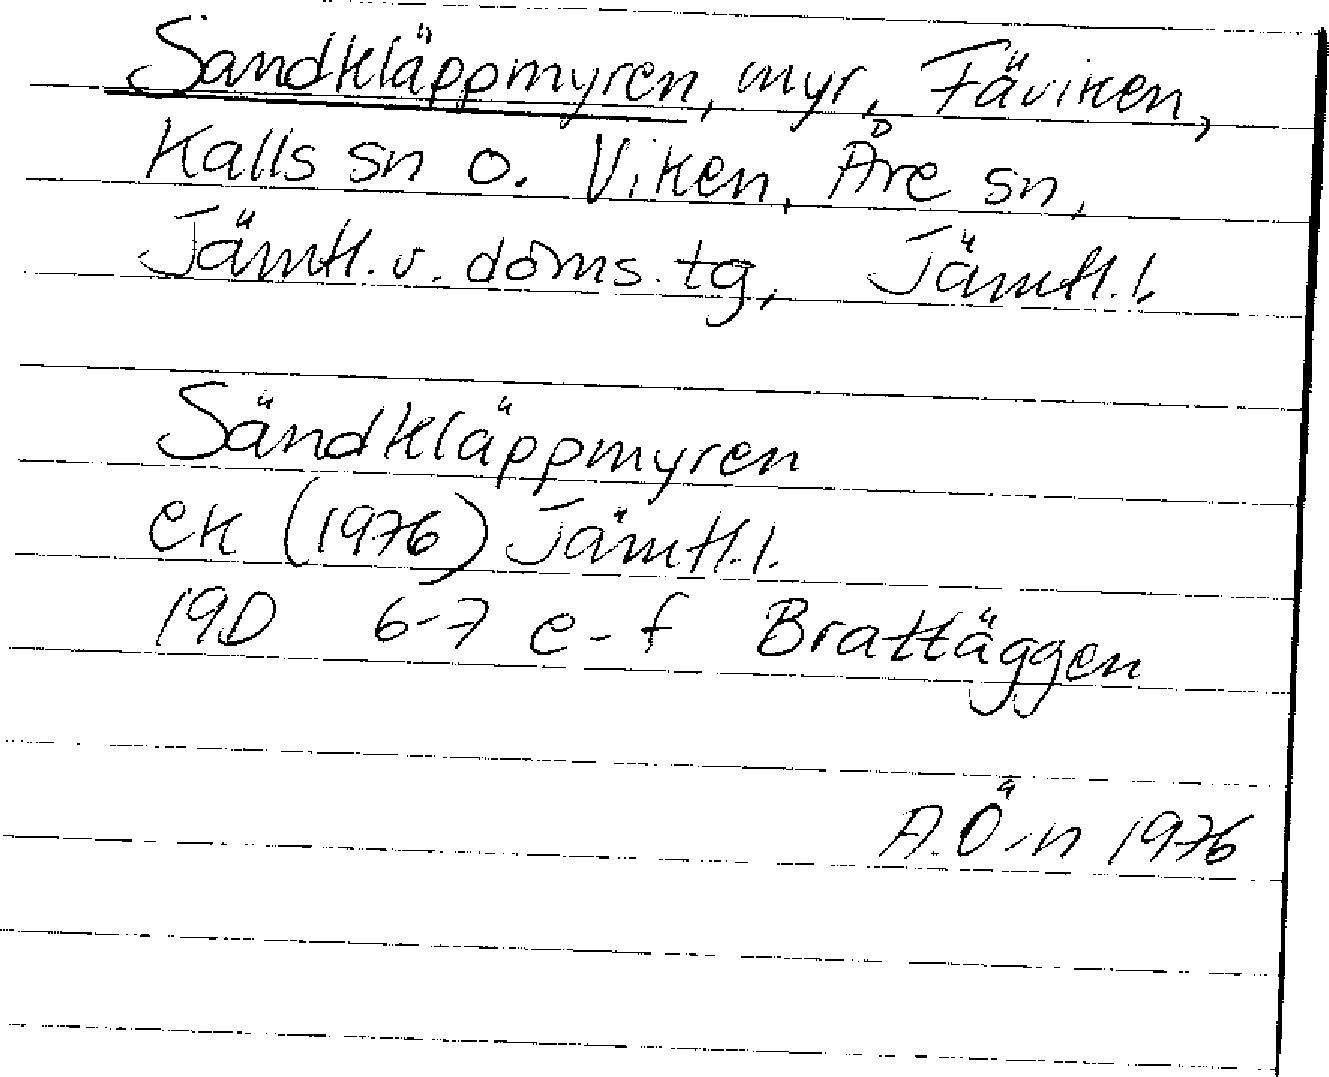 Sandkläppmyren, myr, Fäviken,
Kalls sn o. Viken, Åre sn,
Jämtl. v. doms. tg, Jämtl. l.
Sändkläppmyren
ek (1976) Jämtl. l.
19D 6-7 e-f Brattäggen
A. Ö-n 1976